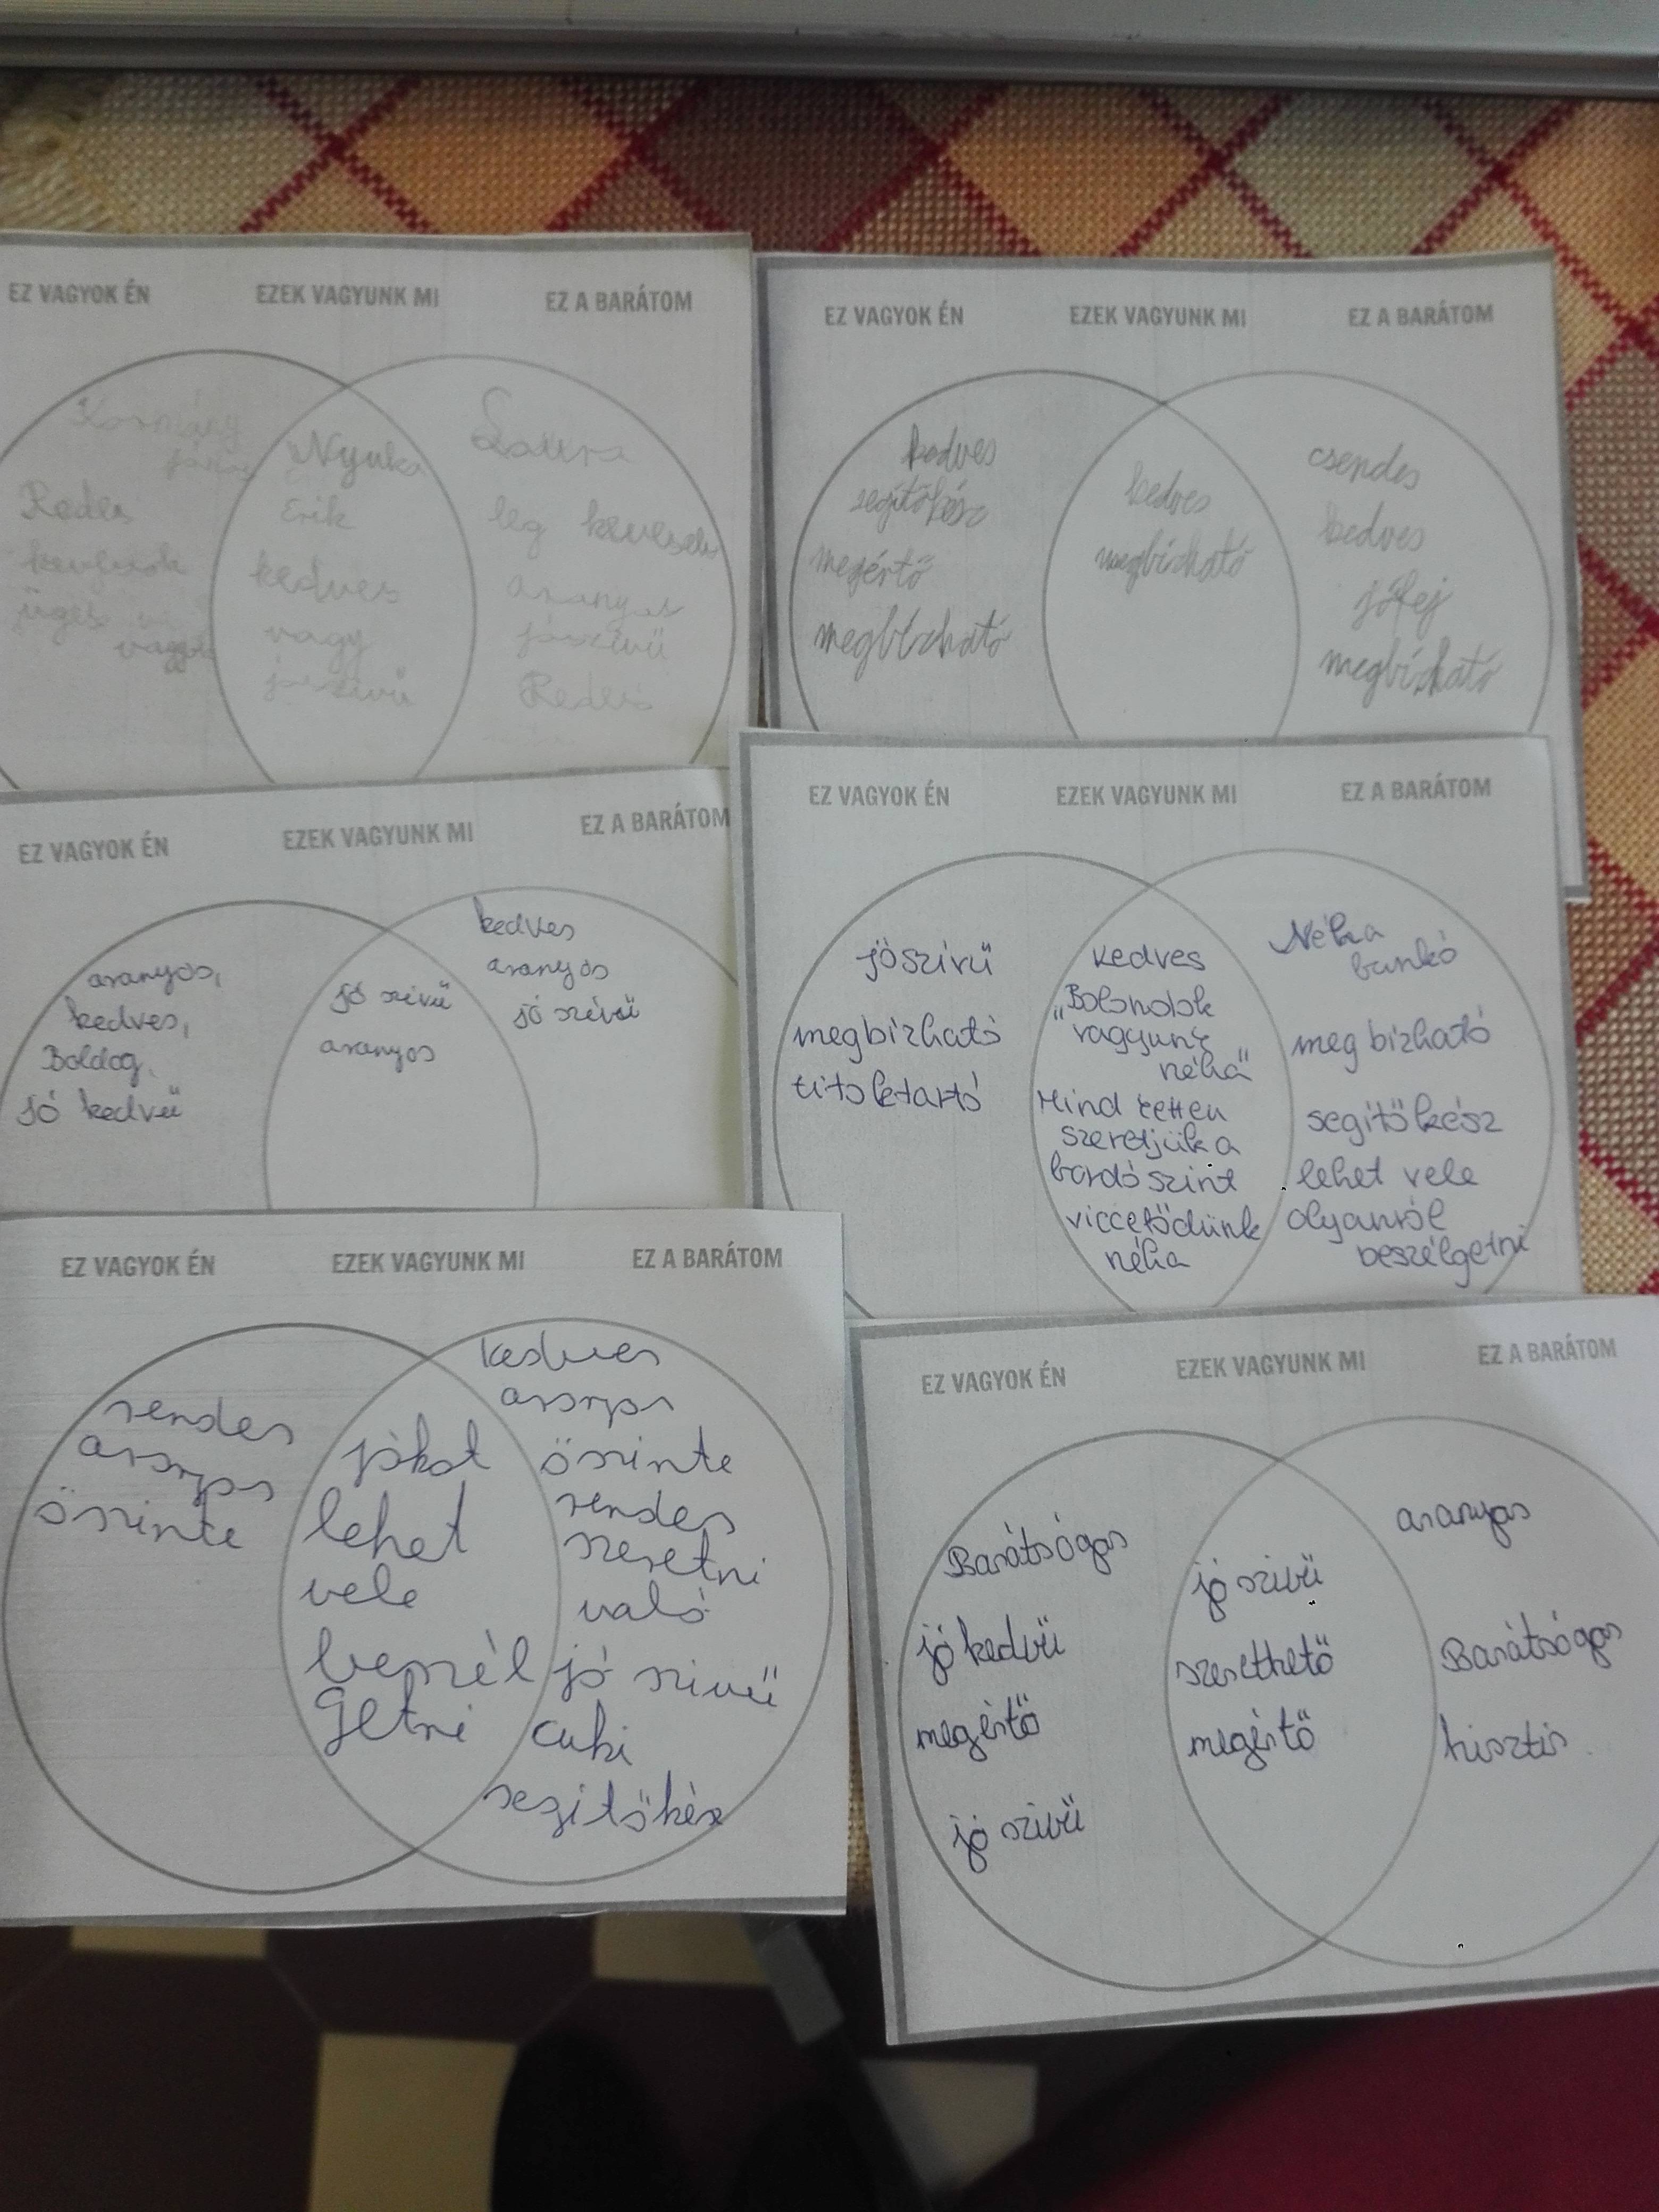 EZ VAGYOK ÉN
EZEK VAGYUNK MI
EZ A BARÁTOM
Kormány
Redes
vagyok
Nyuka
Erik
kedves
vagy
jószivü
Laura
leg
aranyos
jószivü
Redes
EZ VAGYOK ÉN
EZEK VAGYUNK MI
EZ A BARÁTOM
kedves
segítőkész
megértő
megbízható
kedves
megbízható
csendes
kedves
jófej
megbízható
EZ VAGYOK ÉN
EZEK VAGYUNK MI
EZ A BARÁTOM
aranyos,
kedves,
Boldog,
jó kedvű
jó szivű
aranyos
kedves
aranyos
jó szívű
EZ VAGYOK ÉN
EZEK VAGYUNK MI
EZ A BARÁTOM
jószivű
megbizható
titoktartó
kedves
„Bolondok
vagyunk
néha"
Mind ketten
szeretjük a
bordó színt
viccelődünk
néha
Néha
bunkó
megbizható
segítőkész
lehet vele
olyanról
beszélgetni
EZ VAGYOK ÉN
EZEK VAGYUNK MI
EZ A BARÁTOM
rendes
aranyos
őszinte
jókat
lehet
vele
beszél
getni
kedves
aranyos
őszinte
rendes
szeretni
való
jó szivű
cuki
segitőkész
EZ VAGYOK ÉN
EZEK VAGYUNK MI
EZ A BARÁTOM
Barátságos
jó kedvű
megértő
jó szivű
jó szivű
szerethető
megértő
aranyos
Barátságos
hisztis